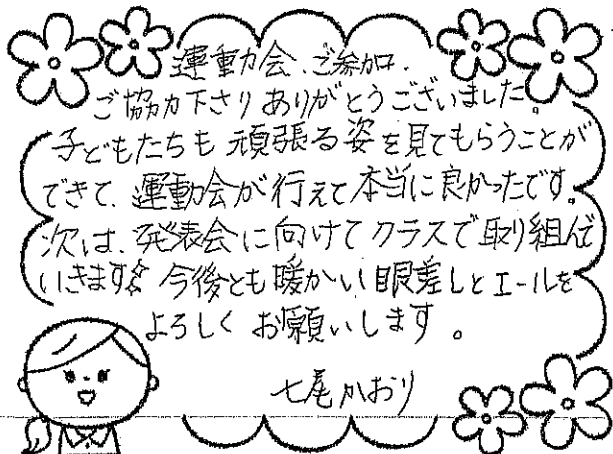 運動会、ご参加、
ご協力下さりありがとうございました。
子どもたちも頑張る姿を見てもらうことが
できて、運動会が行えて本当に良かったです。
次は、発表会に向けてクラスで取り組んで
いきます。今後とも暖かい眼差しとエールを
よろしくお願いします。
七尾かおり